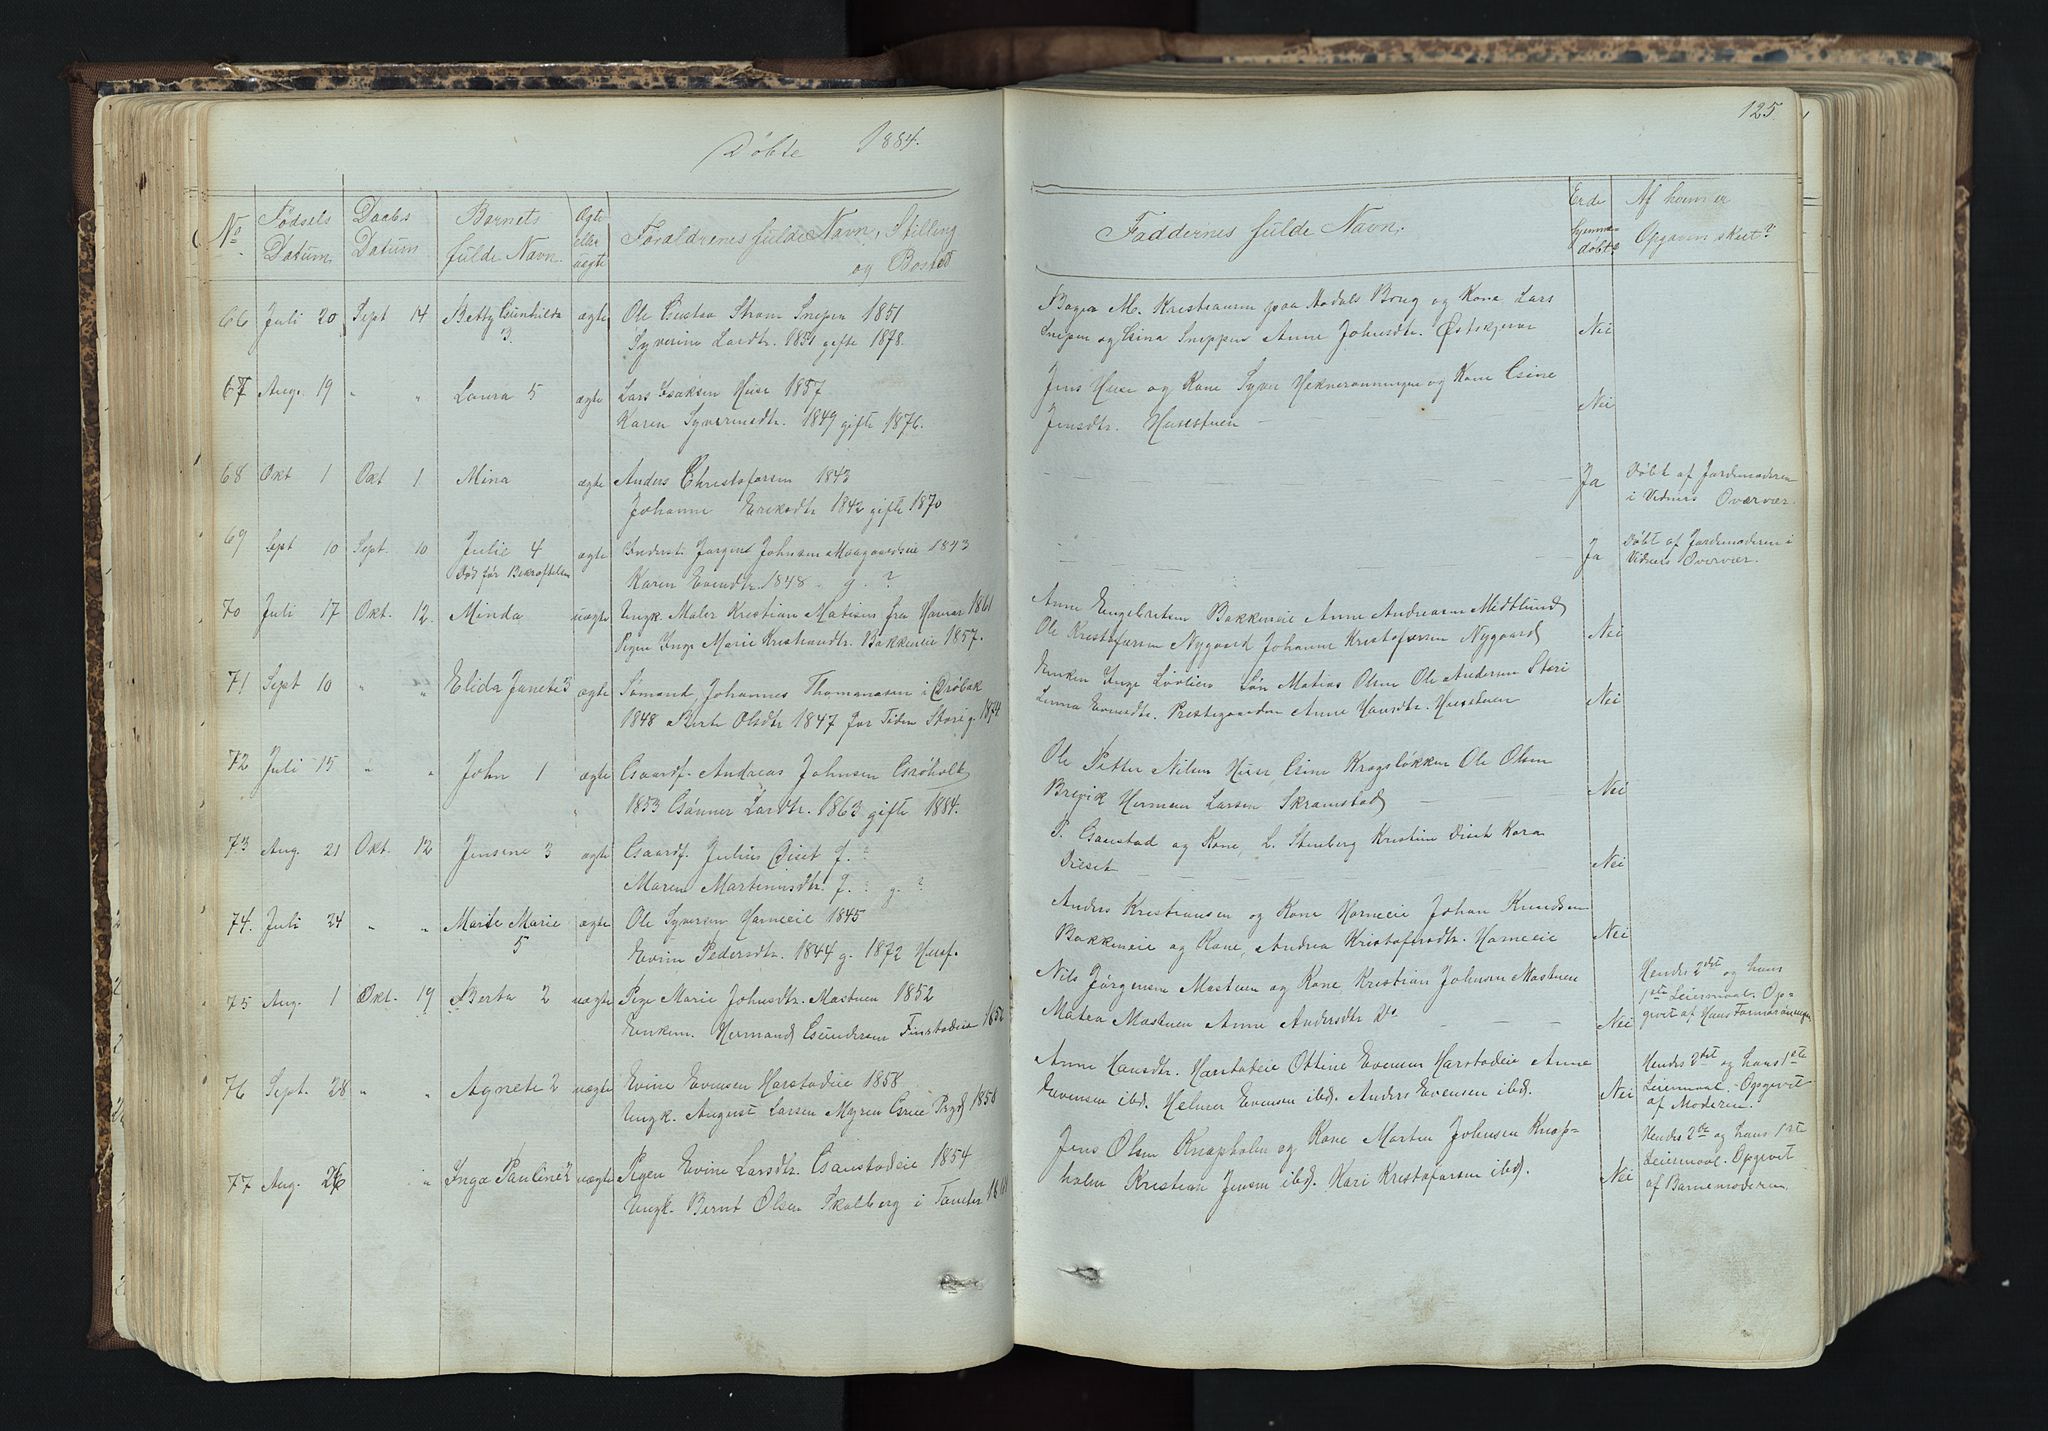 125
Døbte 1884.
No Fødsels Datum Daabs Datum Barnets fulde Navn Ægte eller uægte Forældrenes fulde Navn, Stilling og Bosted
Faddernes fulde Navn. Erde hjemmedøbt Af hvem er Opgaven skeet?
66 Juli 20 Sept 14 Betty Gunhilda 3. ægte Ole Gustav Strøm Snepen 1851
Syverine Larsdtr. 1851 gifte 1878.
M. Kristiansen paa Aadals Brug og Kone Lars
Snepen og Gina Sneppen Anne Johnsdtr. Østskjerør Nei
67 Aug. 19 " " Laura 5 ægte Lars Isaksen Huse 1857
Karen Syversensdtr. 1849 gifte 1876.
Jens Huse og Kone Syver Hekneronningen og Kone Gine
Jensdtr. Husestuen Nei
68 Okt 1 Okt 1 Mina ægte Anders Christofersen 1843
Johanne Eriksdtr 1842 gifte 1870
Ja Døbt af Jordemoderen
i Vidners Overvær.
69 Sept 10 Sept. 10 Julie 4 ægte Inderst. Jørgen Johnsen Maagaardseie 1843
Død før Bekræftelsen Karen Evendtr. 1848 g. ?
Ja Døbt af Jordemoderen i
Vidners Overvær.
70 Juli 17 Okt. 12 Minda uægte Ungk. Maler Kristian Matisen fra Hamar 1861
Pigen Inge Marie Kristiandtr. Bakkeneie 1857.
Anne Engebretsen Bakkeneie Anne Andreasen Midtlund
Ole Kristofersen Nygaard Johanne Kristofersen Nygaard Nei
71 Sept 10 " " Elida Janete 3 ægte Sømand Johannes Thomanasen i Drøbak
1848 Berte Olsdtr 1847 for Tiden Stori g. 1874
Enken Inge Løvlien Søn Matias Olsen Ole Andersen Stori
Evensdtr. Prestegaarden Anne Hansdtr. Husstuen Nei
72 Juli 15 " " John 1 ægte Gaardf. Andreas Johnsen Grøholt
1853 Gønner Larsdtr. 1863 gifte 1884.
Ole Petter Nilsen Huse, Gine Kragsløkken Ole Olsen
Brevik Herman Larsen Skramstad Nei
73 Aug. 21 Okt. 12 Jensine 3 ægte Gaardf. Julius Diset f. ?
Maren Martinusdtr. f. ? g. ?
P. Gaustad og Kone, L. Stenberg Kristine Diset Kara
Dieset Nei
74. Juli 24 " " Marte Marie 5 ægte Ole Syversen Horneeie 1845
Evine Pedersdtr. 1844 g. 1872 Husf.
Anders Kristiansen og Kone Horneeie Johan Knudsen
Bakkeneie og Kone, Andrea Kristofersdtr. Horneeie Nei
75 Aug. 1 Okt. 19 Berta 2 uægte Pige Marie Johnsdtr. Mastuen 1852
Enkem. Hermand Gundersen Finstadeie 1852
Nils Jørgensen Mastuen og Kone Kristian Johnsen Mastuen
Matea Mastuen Anne Andersdtr Do Nei
Hendes 2det og hans
1ste Leiermaal. Op-
givet af Hans
76 Sept. 28 " " Agnete 2 uægte Evine Evensen Harstadeie 1858
Ungk. August Larsen Myren Grue Prgd 1858
Anne Hansdtr. Harstadeie Ottine Evensen Harstadeie Anne
Evensen ibd. Helmer Evensen ibd. Anders Evensen ibd. Nei
Hendes 2det og hans 1ste
Leiermaal. Opgivet
af Moderen.
77 Aug. 26 " Inga Pauline 2 uægte Pigen Evine Larsdtr. Gaustadeie 1854
Ungk. Bernt Olsen Skalberg i
Jens Olsen Knapholm og Kone Morten Johnsen Knap-
holm Kristian Jensen ibd. Kari Kristofersen ibd. Nei
Hendes 2de og hans 1ste
Leiermaal. Opgivet
af Barnemoderen.